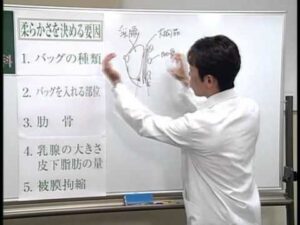 柔らかさを決める要因
科
1. バッグの種類
2. バッグを入れる部位
3. 肋 骨
4. 乳腺の大きさ
皮下脂肪の量
5. 被膜拘縮
乳腺
大胸筋